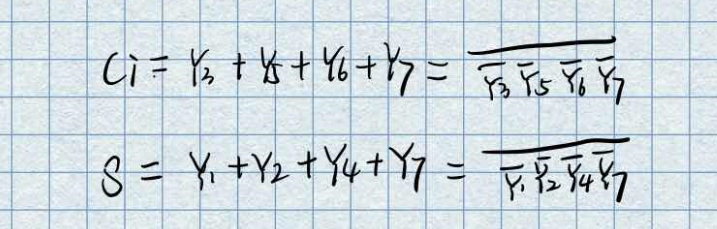 Ci = Y₃ + Y₅ + Y₆ + Y₇ = \overline{\overline{Y₃} \overline{Y₅} \overline{Y₆} \overline{Y₇}}
S = Y₁ + Y₂ + Y₄ + Y₇ = \overline{\overline{Y₁} \overline{Y₂} \overline{Y₄} \overline{Y₇}}